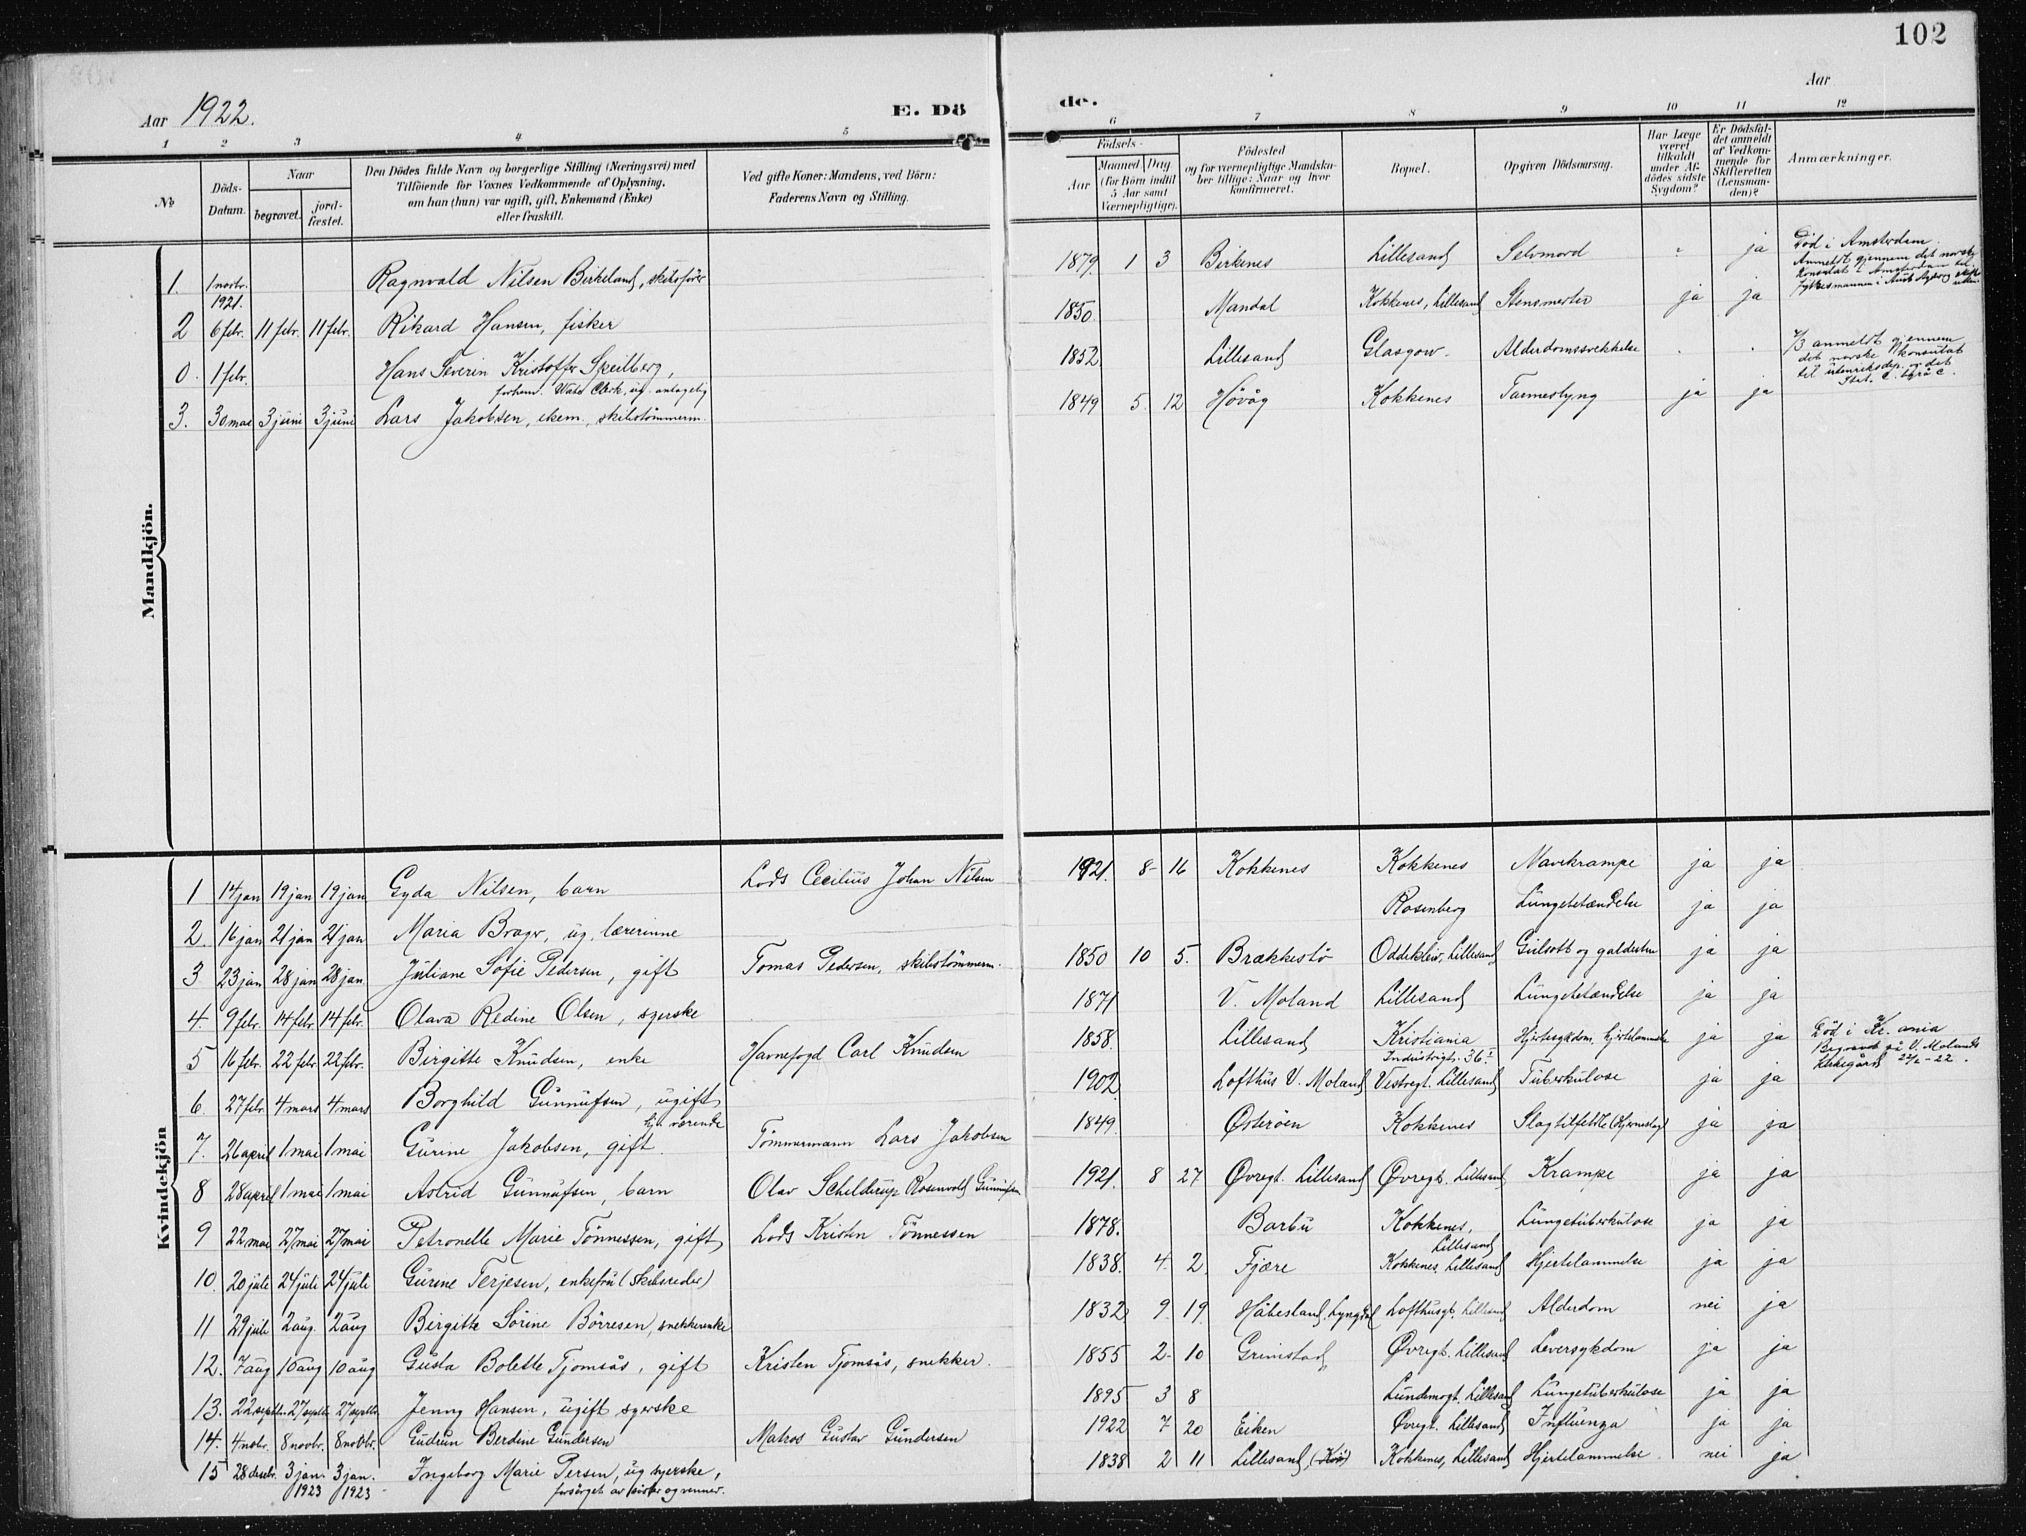 102
Aar 1922. E. Dö de. Aar
1 2 3 4 5 6 7 8 9 10 11 12
№ Döds-Datum. Naar begravet. jord-fæstet. Den Dödes fulde Navn og borgerlige Stilling (Næringsvei) med Tilföiende for Voxnes Vedkommende af Oplysning, om han (hun) var ugift, gift, Enkemand (Enke) eller fraskilt. Ved gifte Koner: Mandens, ved Börn: Faderens Navn og Stilling. Födsels- Aar Maaned Dag (for Börn indtil 5 Aar samt Værnepligtige). Födested og for værnepligtige Mandskaber tillige: Naar og hvor konfirmeret. Bopæl. Opgiven Dödsaarsag. Har Læge været tilkaldt under Afdödes sidste Sygdom? Er Dödsfaldet anmeldt af Vedkommende for Skifteretten (Lensmanden)? Anmærkninger.
Mandkjön.
1. 1 novbr. 1921. Ragnvald Nilsen Birkeland, skibsfører 1879 1 3 Birkenes Lillesand Selvmord - ja Død i Amsterdam. Anmeldt gjennem det norske konsulat i Amsterdam til fylkesmannen i Aust-Agder
2 6 febr. 11 febr. 11 febr. Rikard Hansen, fisker 1850 Mandal Kokkenes, Lillesand Stensmerter ja ja
0. 1 febr. Hans Severin Kristoffer Skeilberg, forhem. Water Clerk, ug. antagelig 1852 Lillesand Glasgow. Alderdomssvekkelse . . 1/3 anmeldt gjennem det norske konsulat til utenriksdep. og det Stat. C. byrå C.
3. 30 mai 3 juni 3 juni Lars Jakobsen, ekem., skibstømmerm. 1849 5 12 Høvåg Kokkenes Tarmeslyng ja ja
Kvindekjön
1 14 jan 19 jan 19 jan Gyda Nilsen, barn Lods Cecilius Johan Nilsen 1921. 8 - 16 Kokkenes Kokkenes Mavekrampe ja ja
2. 16 jan 21 jan 21 jan Maria Brager, ug. lærerinne Rosenberg Lungebetændelse ja ja
3 23 jan 28 jan 28 jan Juliane Sofie Pedersen, gift Tomas Pedersen, skibstömmerm. 1850 10 5. Brækkestø Oddekleiv, Lillesand Gulsott og galdesten ja ja
4. 9 febr. 14 febr. 14 febr. Olava Redine Olsen, syerske 1871 V. Moland Lillesand Lungebetændelse ja ja
5 16 febr. 22 febr. 22 febr. Birgitte Knudsen, enke Havnefogd Carl Knudsen 1858. Lillesand Kristiania Industrigt. 36 I Hjertesygdom, hjertelammelse ja ja Død i Kr.ania Begravet på V. Molands kirkegård 22/2-22.
6. 27 febr. 4 mars 4 mars Borghild Gunnufsen, ugift hj. værende 1902 Lofthus V. Moland Vestregt. Lillesand Tuberkulose ja ja
7. 26 april 1 mai 1 mai Gurine Jakobsen, gift. Tömmermann Lars Jakobsen 1849. Østerøen Kokkenes Slagtilfelle (Hjerneslag) ja ja
8 28 april 1 mai 1 mai Astrid Gunnufsen, barn Olav Schelderup Rosenvold Gunnufsen 1921. 8 27 Øvregt. Lillesand Øvregt. Lillesand Krampe ja ja
9 22 mai 27 mai 27 mai Petronelle Marie Tönnessen, gift Lods Kristen Tönnessen 1878. Barbu Kokkenes, Lillesand Lungetuberkulose ja ja
10. 20 juli 24 juli 24 juli Gurine Terjesen, enkefru (skibsreder) 1838. 4. 2. Fjære Kokkenes, Lillesand Hjertelammelse ja ja
11 29 juli 2 aug. 2 aug Birgitte Sörine Börresen, snekkerenke 1832 9. 19. Håbesland, Lyngdal Lofthusgt, Lillesand Alderdom nei ja
12. 7 aug 10 aug 10 aug Gusta Bolette Tjomsås, gift Kristen Tjomsås, snekker. 1855 2- 10 Grimstad Øvregt. Lillesand Leversykdom ja ja
13. 22 septbr. 27 septbr 27 septbr. Jenny Hansen, ugift syerske 1895 3 8 Lundemogt. Lillesand Lungetuberkulose ja ja
14. 4 novbr. 8 novbr. 8 novbr. Gudrun Berdine Gundersen Matros Gustav Gundersen 1922 7 20 Eiken Øvregt. Lillesand Influenza ja ja
15 28 desbr. 3 jan. 1923 3 jan. 1923 Ingeborg Marie Persen, ug syerske, forsørget av søster og venner. 1838 2 11 Lillesand Kokkenes, Lillesand Hjertelammelse. nei ja